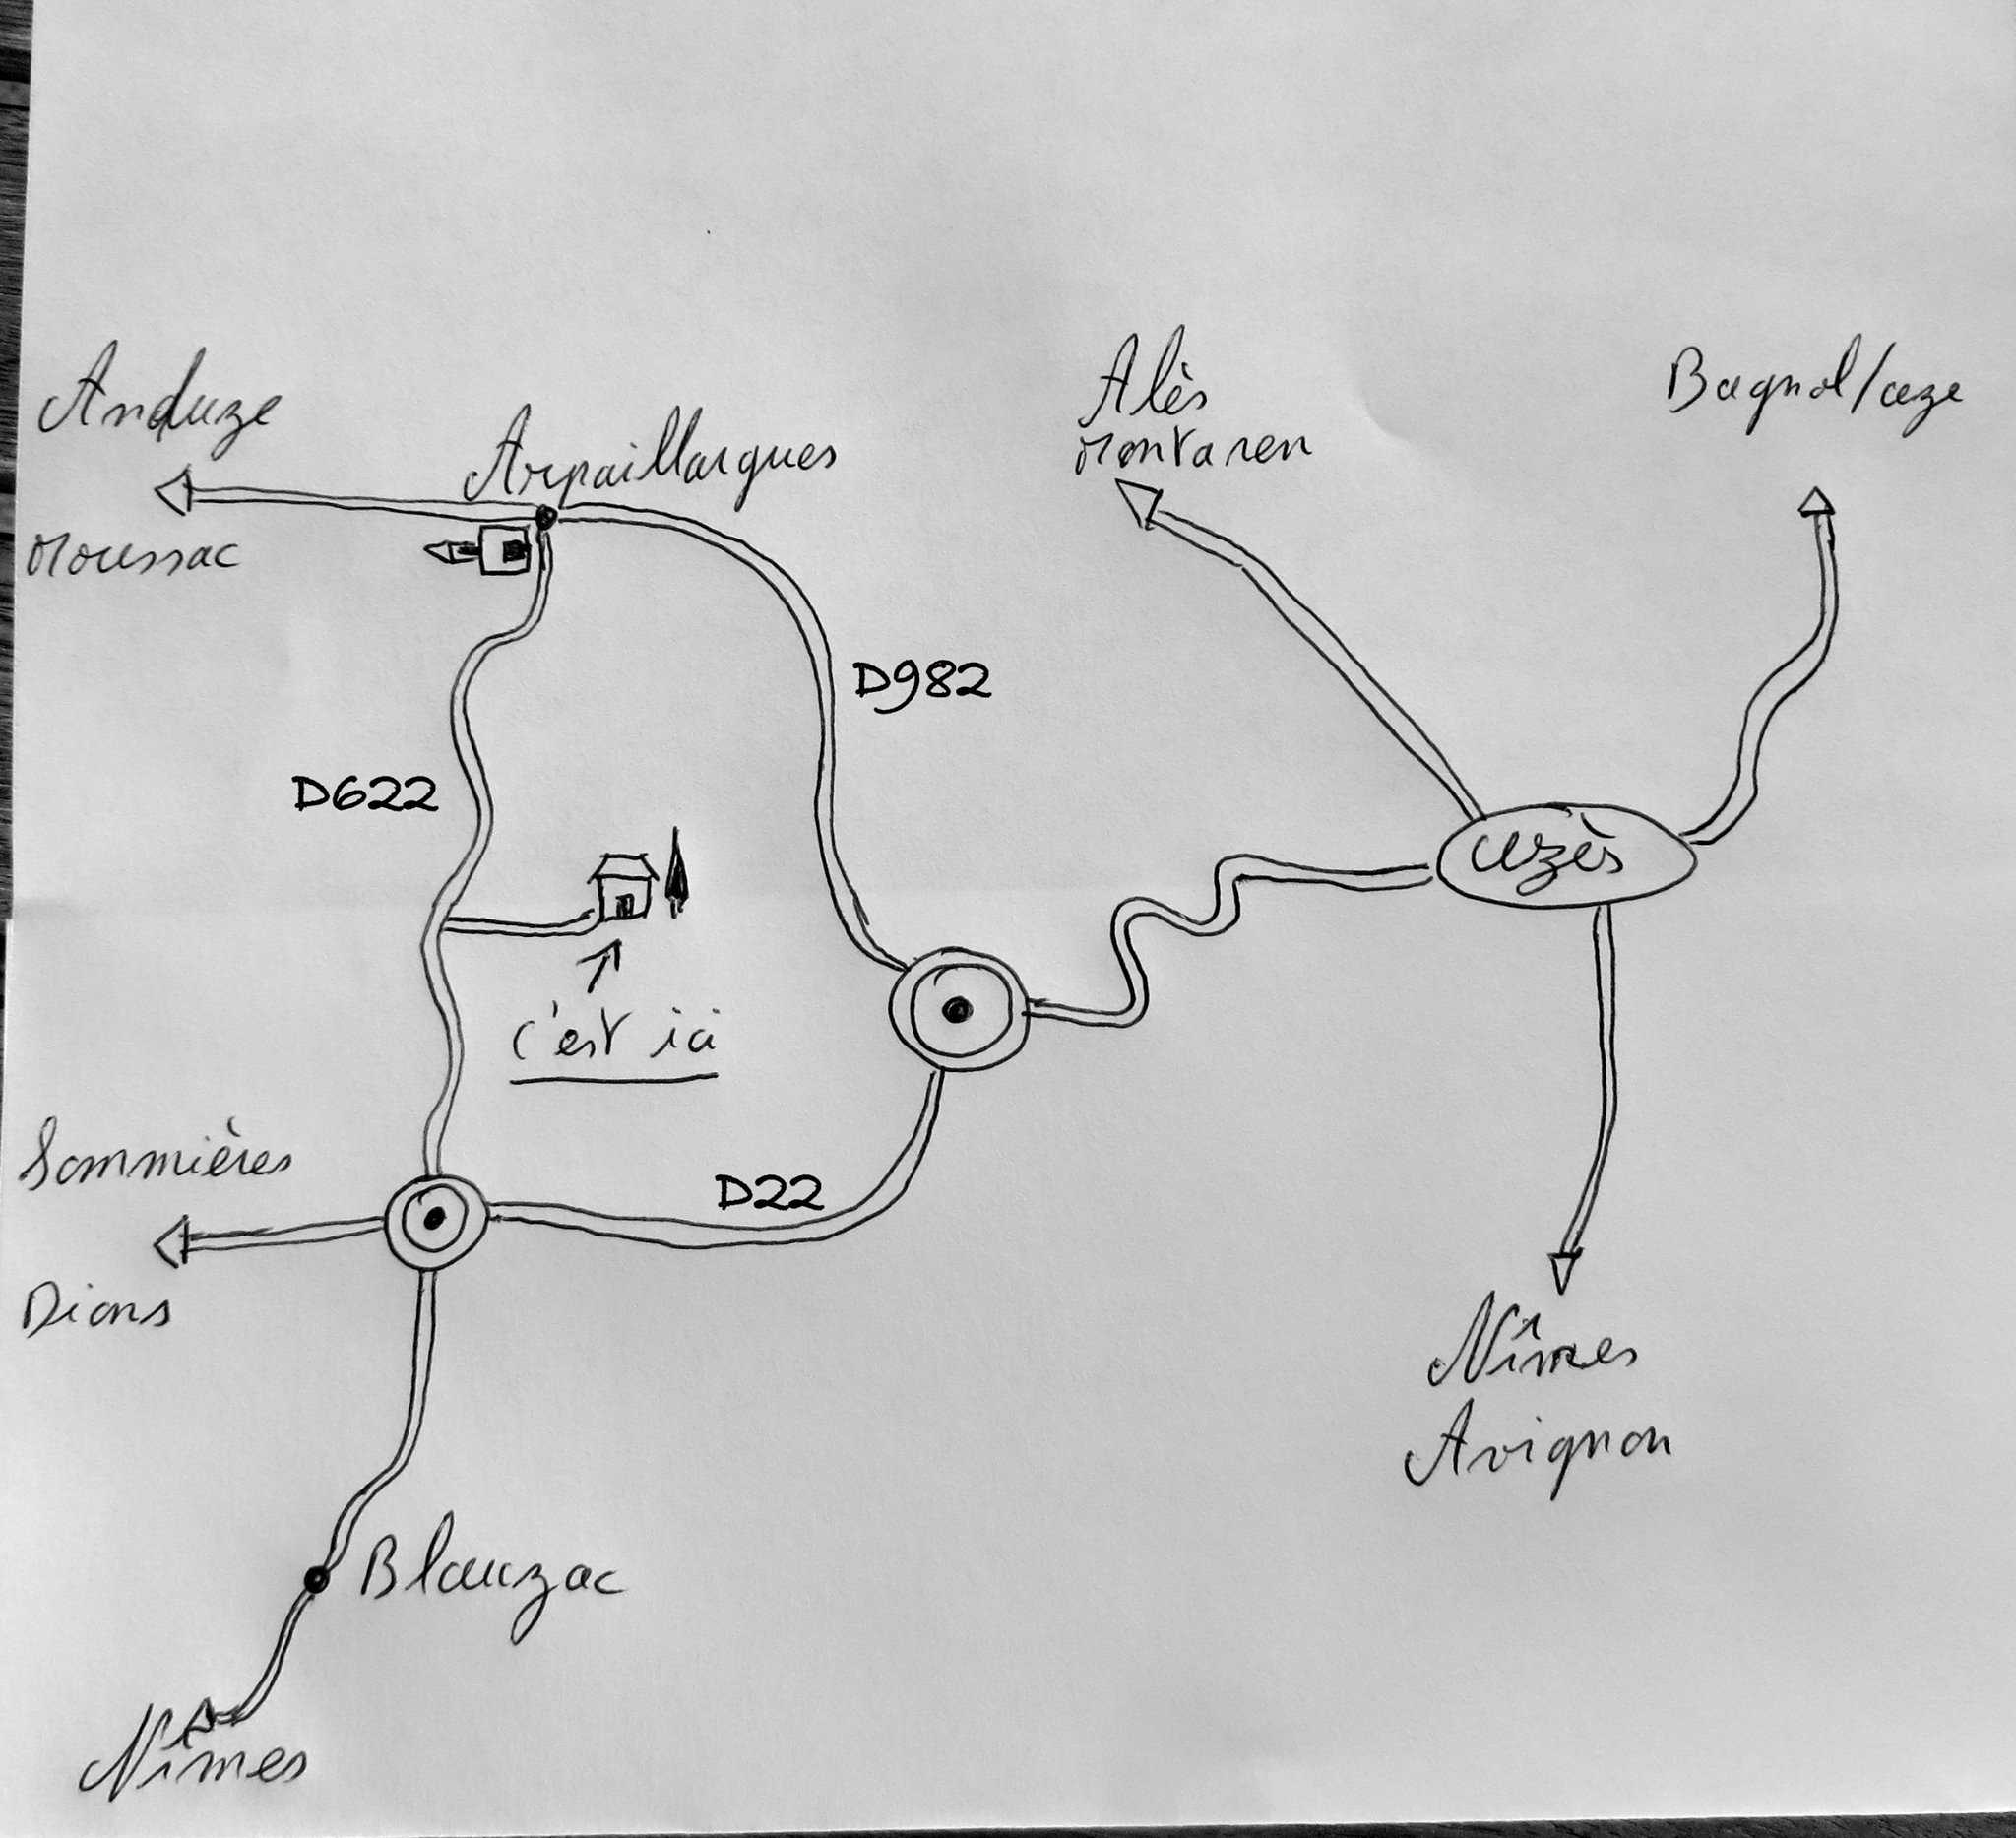 Anduze
Moussac
Arpaillargues
Alès
Montaren
Bagnol/ceze
D982
D622
Uzès
c'est ici
Sommières
Dions
D22
Nîmes
Avignon
Blauzac
Nîmes